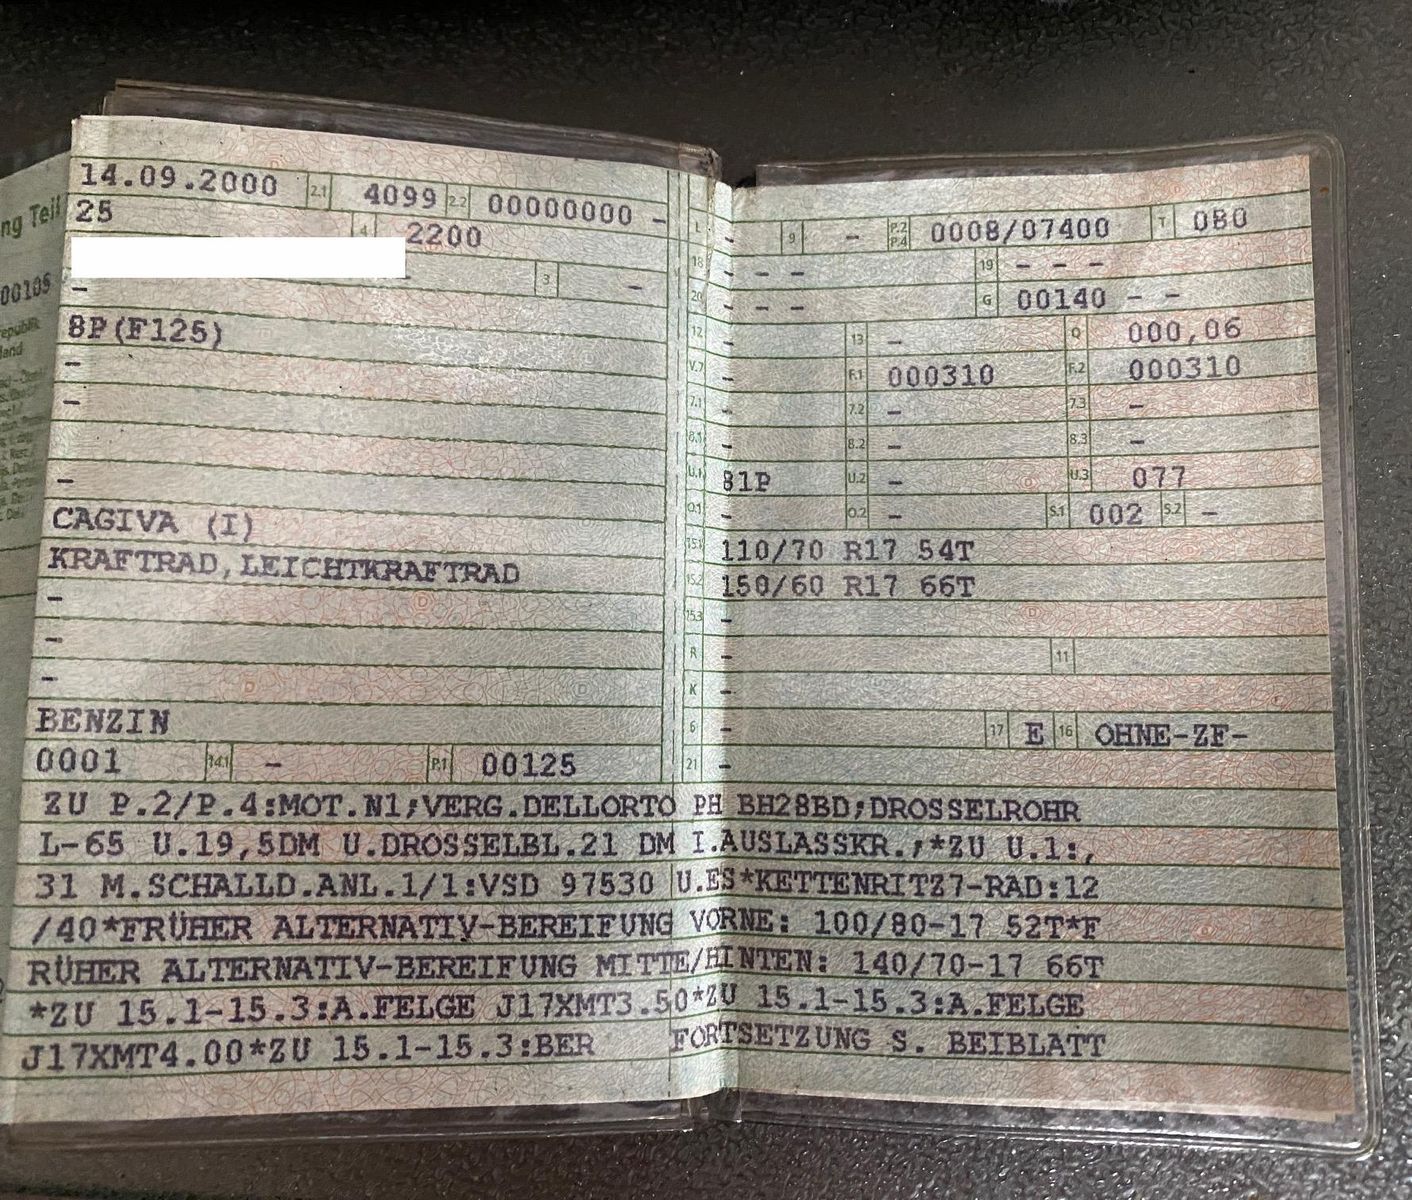 ng Teil
00105
14.09.2000 2.1 4099 2.2 00000000 -
25 4 2200
- 3 -
-
8P(F125)
-
-
-
CAGIVA (I)
KRAFTRAD,LEICHTKRAFTRAD
-
-
-
BENZIN
0001 14.1 - P.1 00125
L - 9 - P.2 P.4 0008/07400 T 080
18 - - - 19 - - -
20 - - - G 00140 - -
12 - 13 - Q 000,06
V.7 - F.1 000310 F.2 000310
7.1 - 7.2 - 7.3 -
8.1 - 8.2 - 8.3 -
U.1 81P U.2 - U.3 077
O.1 - O.2 - S.1 002 S.2 -
15.1 110/70 R17 54T
15.2 150/60 R17 66T
15.3 -
R - 11
K -
6 - 17 E 16 OHNE-ZF-
21 -
ZU P.2/P.4:MOT.N1;VERG.DELLORTO PH BH28BD;DROSSELROHR
L-65 U.19,5DM U.DROSSELBL.21 DM I.AUSLASSKR.;*ZU U.1:,
31 M.SCHALLD.ANL.1/1:VSD 97530 U.ES*KETTENRITZ7-RAD:12
/40*FRÜHER ALTERNATIV-BEREIFUNG VORNE: 100/80-17 52T*F
RÜHER ALTERNATIV-BEREIFUNG MITTE/HINTEN: 140/70-17 66T
*ZU 15.1-15.3:A.FELGE J17XMT3.50*ZU 15.1-15.3:A.FELGE
J17XMT4.00*ZU 15.1-15.3:BER FORTSETZUNG S. BEIBLATT